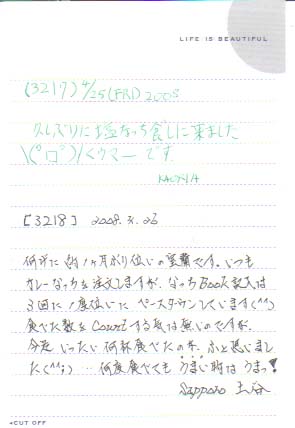 LIFE IS BEAUTIFUL
(3217) 4/25(FRI) 2008
久しぶりに塩なっち食しに来ました
\(°ロ°)/くウマーです
[3218] 2008.
何年に 約1ヶ月ぶり位いの登葉です。いつも
カレーなっちを注文しますが、なっちBook記入は
3回に1度位いに ペースダウンしています(^^)
食べた数をcountする気は無いのですが、
今迄いったい何杯食べたのか、ふと思いまし
た(^^;) … 何度食べても うまい時はうまっ!
Sapporo
◂CUT OFF